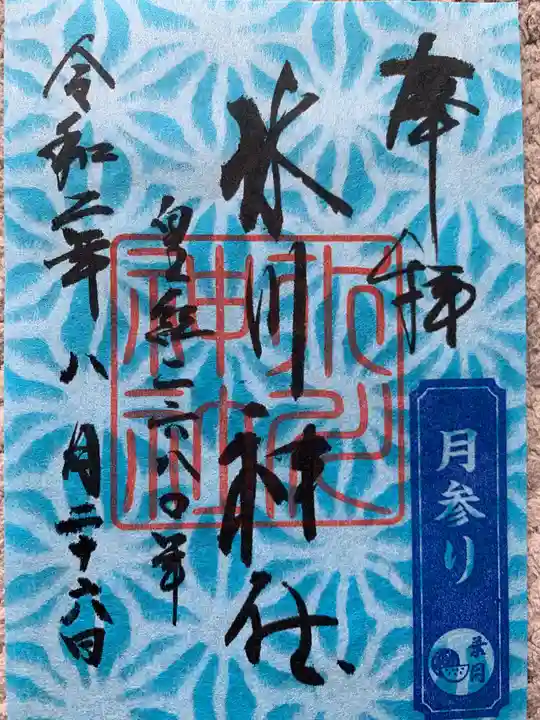 奉拝
月参り
葉月
氷川神社
氷川神社
皇紀二六八〇年
令和二年八月二十六日